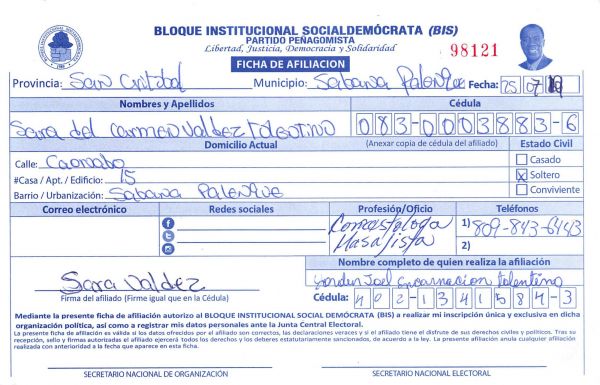 BLOQUE INSTITUCIONAL SOCIALDEMÓCRATA (BIS)
PARTIDO PEÑAGOMISTA
Libertad, Justicia, Democracia y Solidaridad
98121
FICHA DE AFILIACION
Provincia: San Cristobal Municipio: Sabana Palenque Fecha: 25 07
Nombres y Apellidos Cédula
Sara del Carmen Valdez Tolentino 083-0003883-6
Domicilio Actual (Anexar copia de cédula del afiliado) Estado Civil
Calle: Caonabo Casado
#Casa / Apt. / Edificio: 15 X Soltero
Barrio / Urbanización: Sabana Palenque Conviviente
Correo electrónico Redes sociales Profesión/Oficio Teléfonos
Masajista 1) 809-843-6143
2)
Nombre completo de quien realiza la afiliación
Sara Valdez Joel Encarnacion Tolentino
Firma del afiliado (Firme igual que en la Cédula) Cédula: 402-1341584-3
Mediante la presente ficha de afiliación autorizo al BLOQUE INSTITUCIONAL SOCIAL DEMÓCRATA (BIS) a realizar mi inscripción única y exclusiva en dicha
organización política, así como a registrar mis datos personales ante la Junta Central Electoral.
La presente ficha de afiliación es válida si los datos ofrecidos por el afiliado son correctos, las declaraciones veraces y si el afiliado tiene el disfrute de sus derechos civiles y políticos. Tras su
recepción, sello y firmas autorizadas el afiliado ejercerá todos los derechos y los deberes estatutariamente sancionados, de acuerdo a la ley. La presente afiliación anula cualquier afiliación
realizada con anterioridad a la fecha que aparece en esta ficha.
SECRETARIO NACIONAL DE ORGANIZACIÓN SECRETARIO NACIONAL ELECTORAL